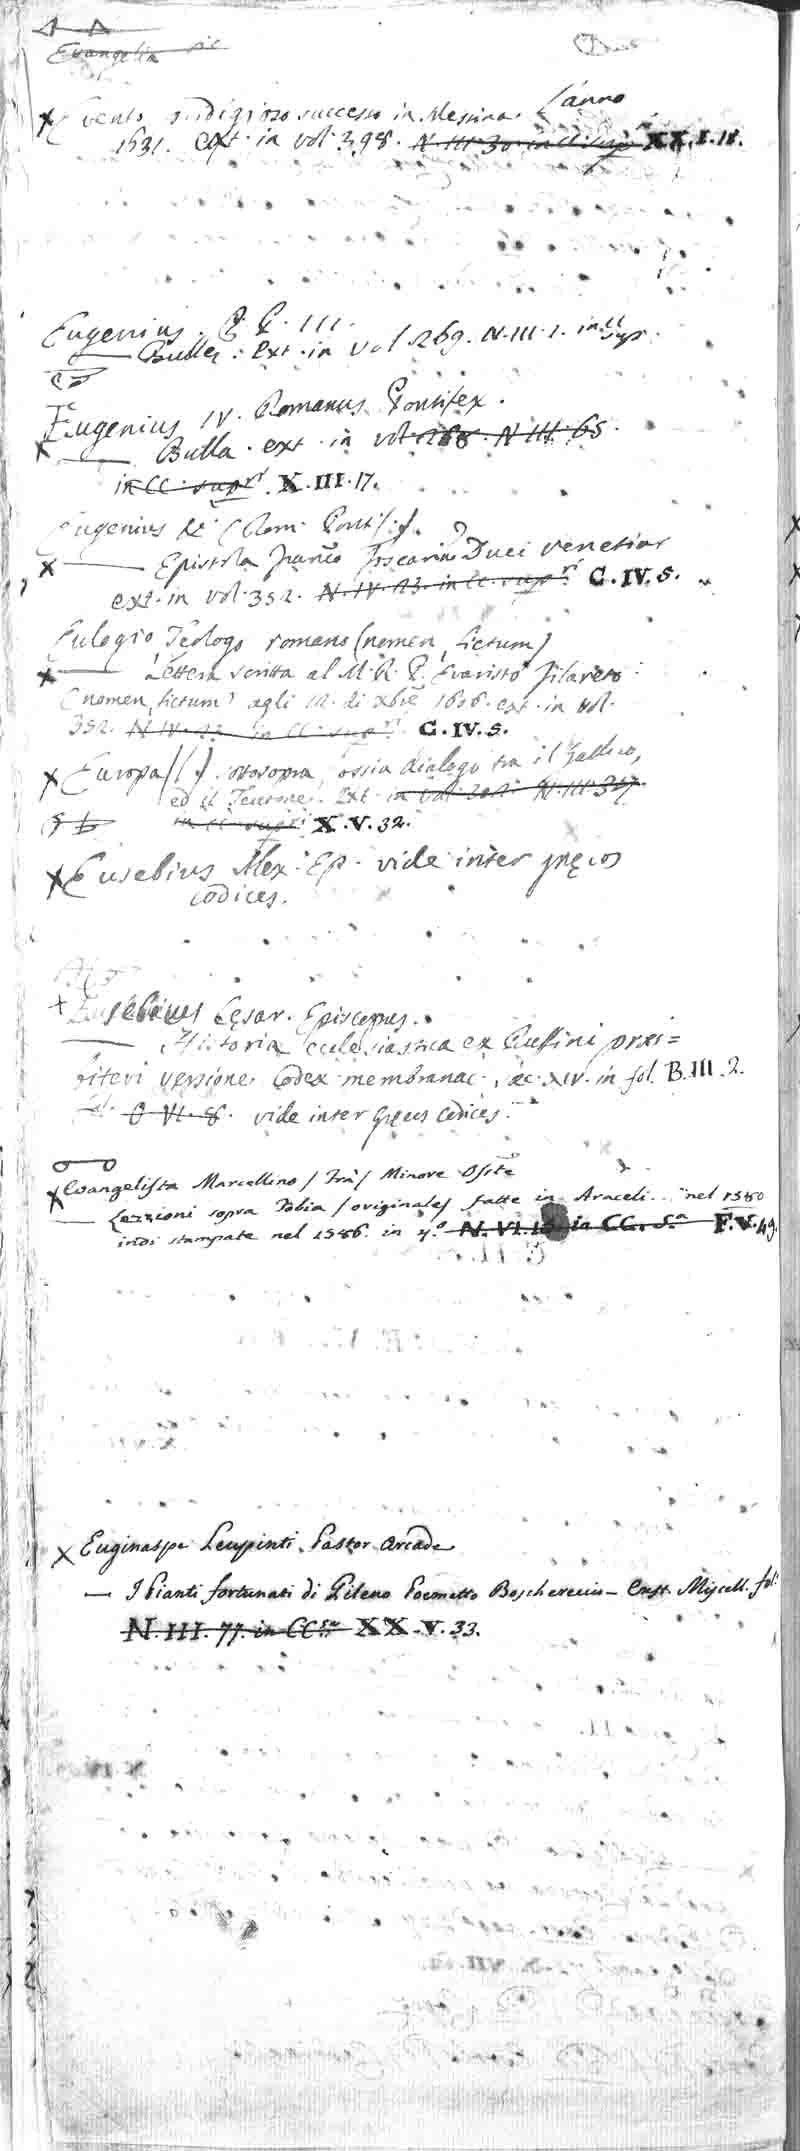 Evangelia sic
X Evento prodigioso successo in Messina. L'anno
1631. ext. in vol. 398. N. III. 30. in CC. sup. XX. I. 18.
Eugenius. P. P. III.
— Bulla. ext. in vol. 269. N. III. 1. in CC. supr.
Eugenius IV. Romanus Pontifex.
X — Bulla. ext. in vol. 268. N. III. 65.
in CC. supri. X. III. 17.
Eugenius (Rom. Pontif.)
X — Epistola Franco Foscarino Duci venetiar
ext. in vol. 352. N. IV. 23. in CC. supri. C. IV. 5.
Eulogio Teologo romano (nomen fictum)
X — Lettera scritta al M. R. P. Evaristo Filareto
(nomen fictum) agli 12. di xbre 1606. ext. in vol.
352. N. IV. 23. in CC. supri. C. IV. 5.
X Europa (L') sossopra, ossia dialogo tra il Gallico,
ed il Teutone. Ext. in vol. N. III. 327.
in CC. supri. X. V. 32.
X Eusebius Alex. Ep. vide inter gręcos
codices.
+ Eusebius Cęsar. Episcopus.
— Historia eclesiastica ex Ruffini præs=
biteri versione. Codex membranac. sæc. XIV. in fol. B. III. 2.
O. VI. 8. vide inter Gręcos Codices.
X Evangelista Marcellino / Frà / Minore Osste
— Lezzioni sopra Tobia / originale / fatte in Araceli nel 1580
indi stampate nel 1586. in 4.o N. VI. in CC. S.a F. V. 49.
X Euginaspe Leupinti Pastor Arcade
— I Pianti fortunati di Fileno Poemetto Boscherecio — Cart. Miscell. fol.
N. III. 77. in CC. Sra XX. V. 33.